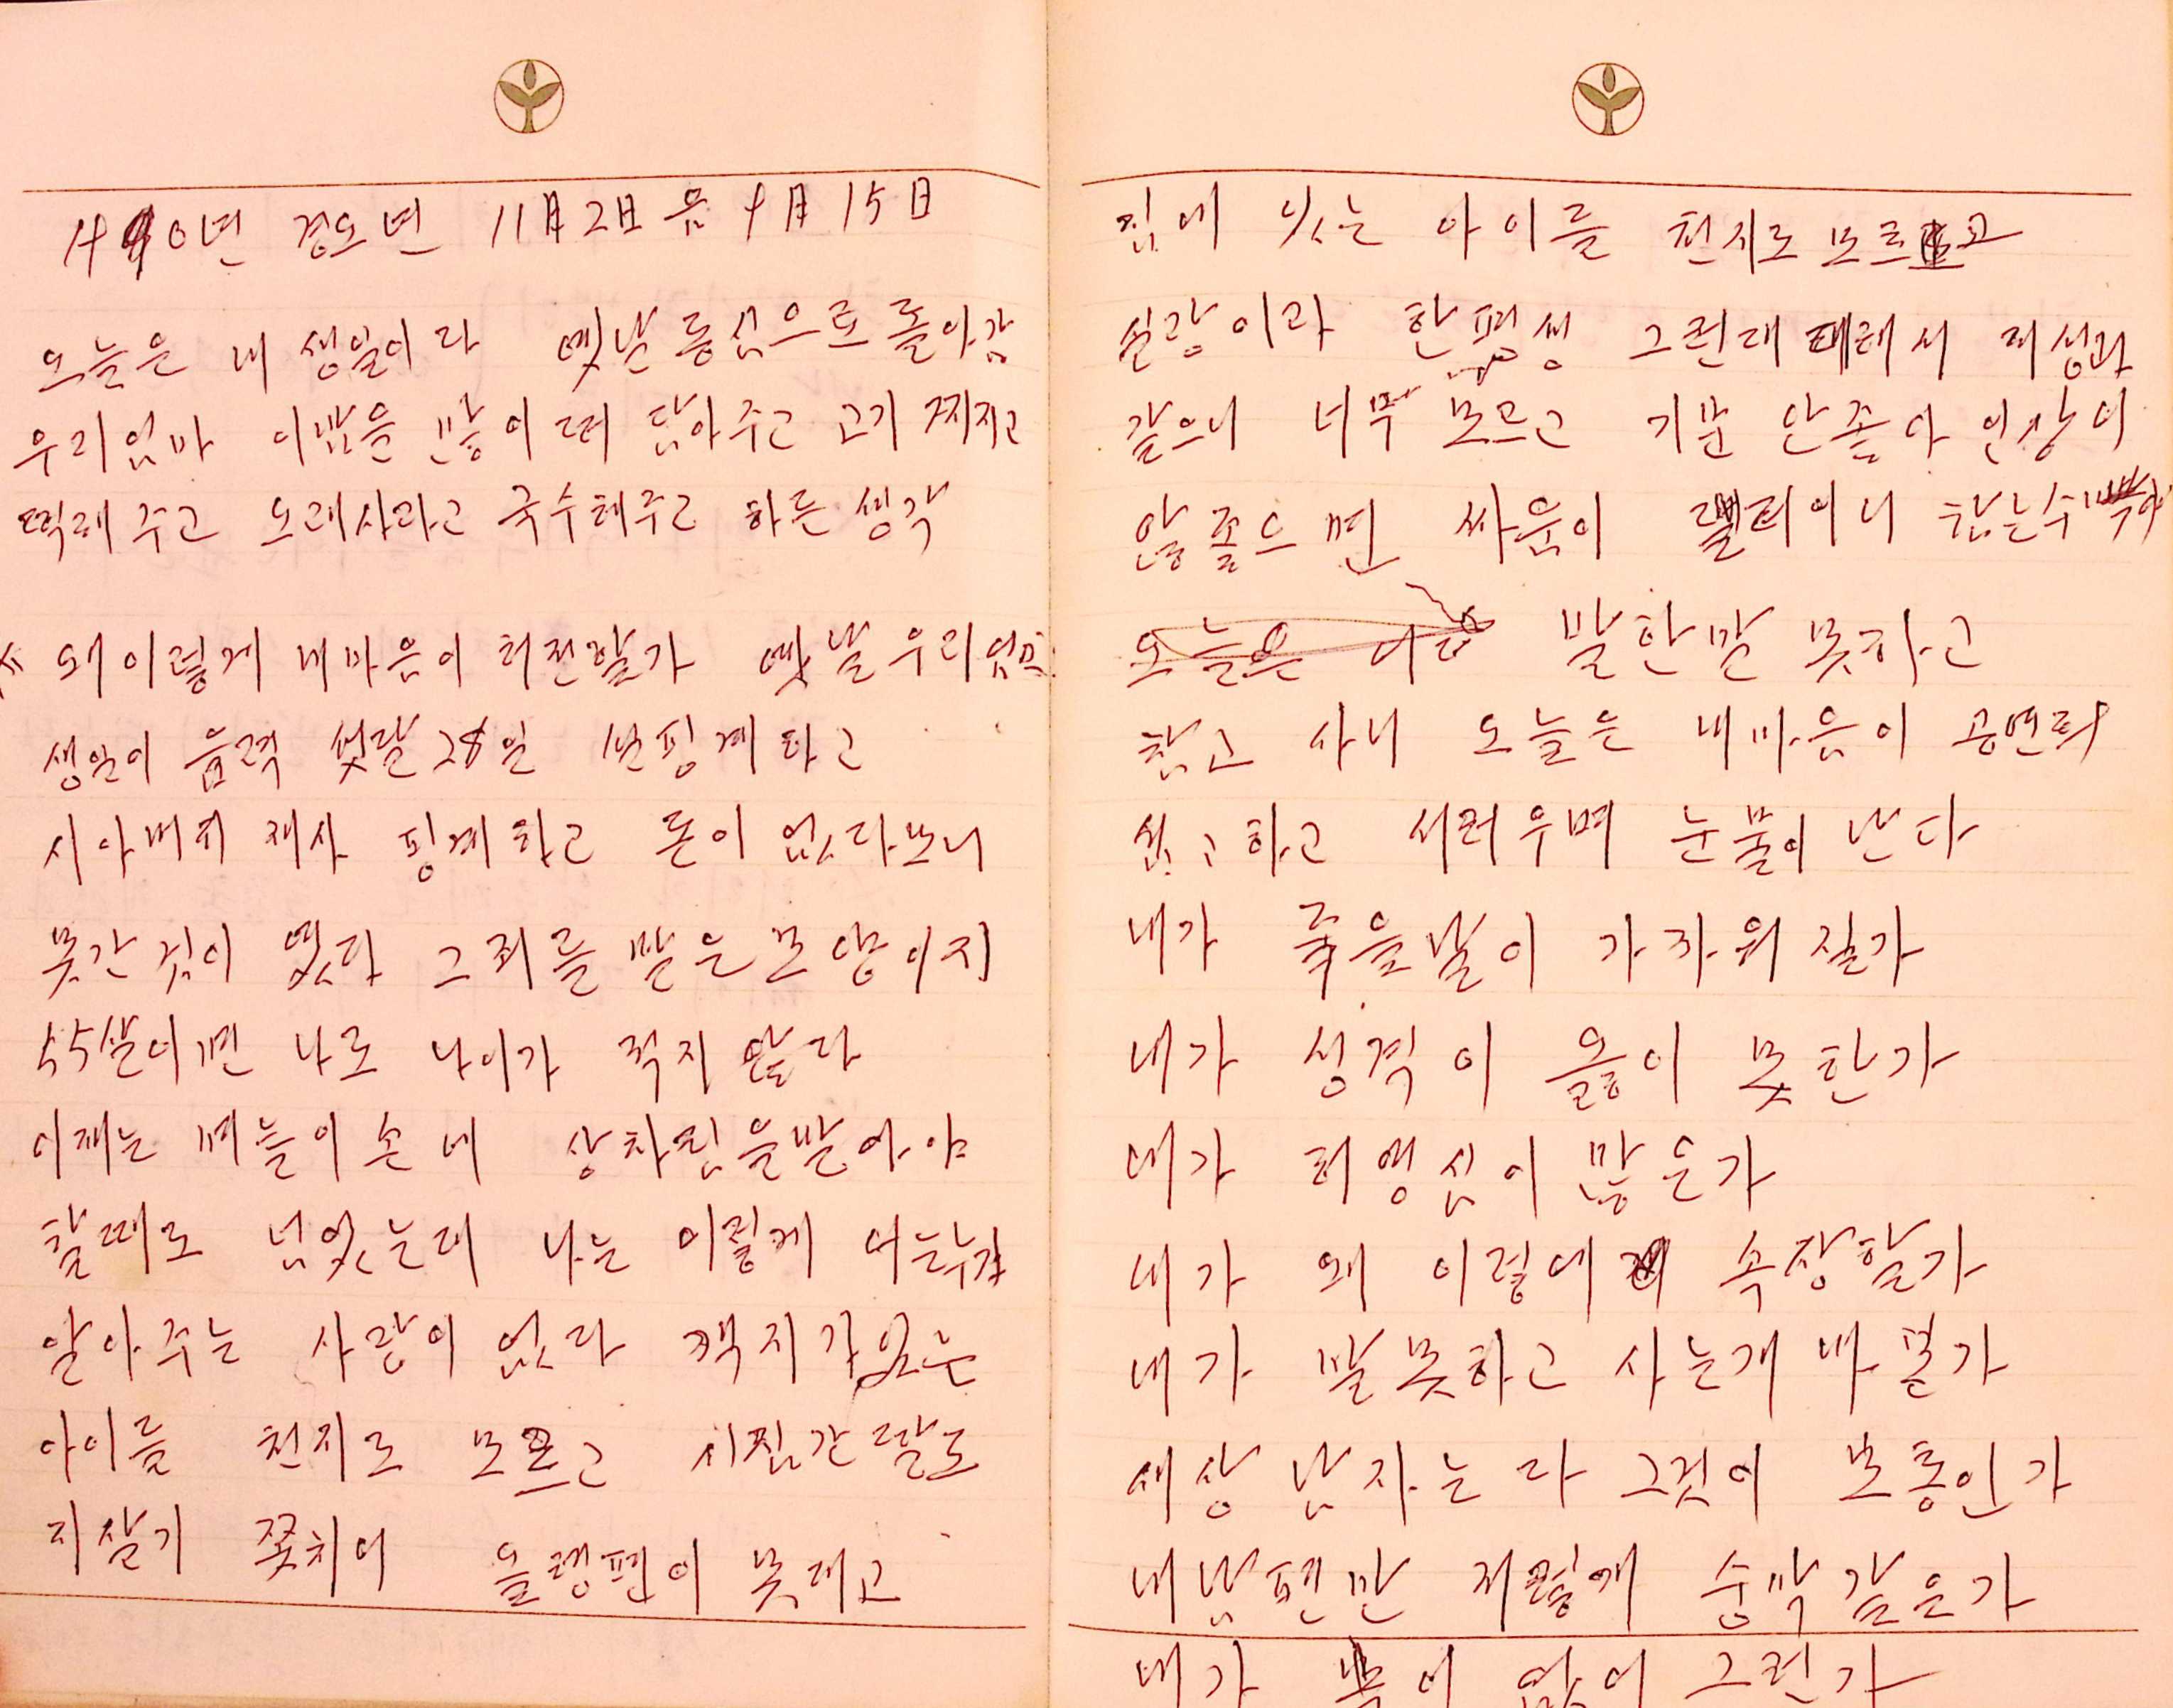 1990년 경오년 11月 2日 음 9月 15日
오늘은 내 생일이라 옛날 동심으로 돌아감
우리엄마 이밥을 많이 떠 담아주고 고기 찌지고
떡해 주고 오래사라고 국수해주고 하든 생각
왜이렇게 내마음이 허전할가 옛날 우리엄마
생일이 음력 섯달 28일 설핑계하고
시아버지 재사 핑계하고 돈이 없다보니
못간 것이 였다 그 죄를 받은 모양이지
55살이면 나로 나이가 적지 않다
이재는 며늘이 손에 상차림을 받아야
할때도 넘엇는데 나는 이렇게 어느누가
알아주는 사람이 없다 객지가있는
아이들 천지로 모르고 시집간 딸도
지살기 쫓치어 올형편이 못데고
집에 있는 아이들 천지로 모르고
실랑이라 한평생 그런대 저성과
같으니 너무 모르고 기분 안좋아 인상이
않좋으면 싸움이 참는수
오늘은 말한말 못하고
참고 사니 오늘은 내마음이 공연희
하고 서러우며 눈물이 난다
내가 죽을날이 가까워 질가
내가 성격이 옳이 못한가
내가 허영심이 많은가
내가 왜 이렇에 속장할가
내가 말못하고 사는게 바본가
새상 남자는 다 그것이 보통인가
내남편만 저렇게 숭막같은가
내가 복이 없어 그런가